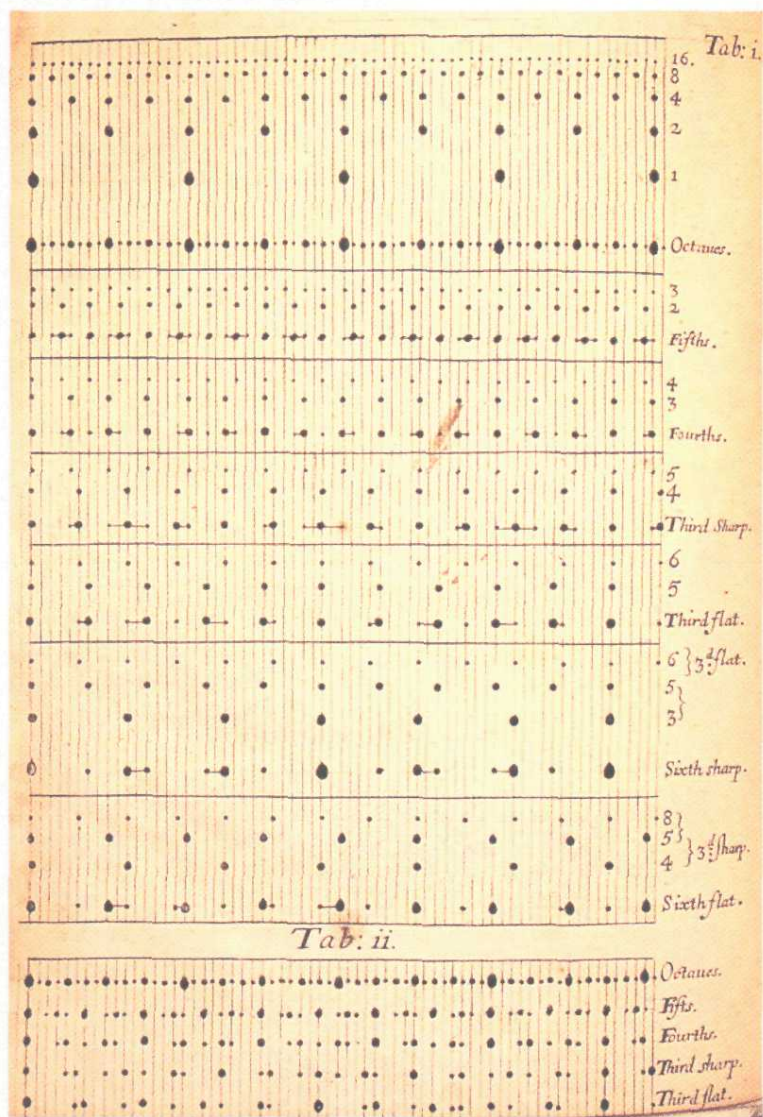 Tab: i.
16.
8
4
2
1
Octaves.
3
2
Fifths.
4
3
Fourths.
5
4
Third Sharp.
6
5
Third flat.
6 } 3d: flat.
5 }
3
Sixth sharp.
8 }
5 } 3d: sharp.
4
Sixth flat.
Tab: ii.
Octaves.
Fifts.
Fourths.
Third sharp.
Third flat.